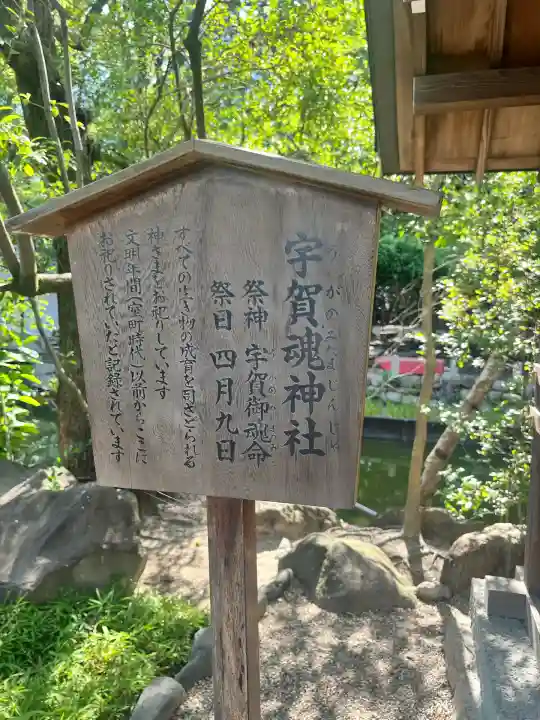 宇賀魂神社
うがのみたましんじゃ
祭神 宇賀御魂命
祭日 四月九日
すべての生き物の成育を司さどられる
神さまをお祀りしています
文明年間（室町時代）以前からここに
お祀りされていたと記録されています